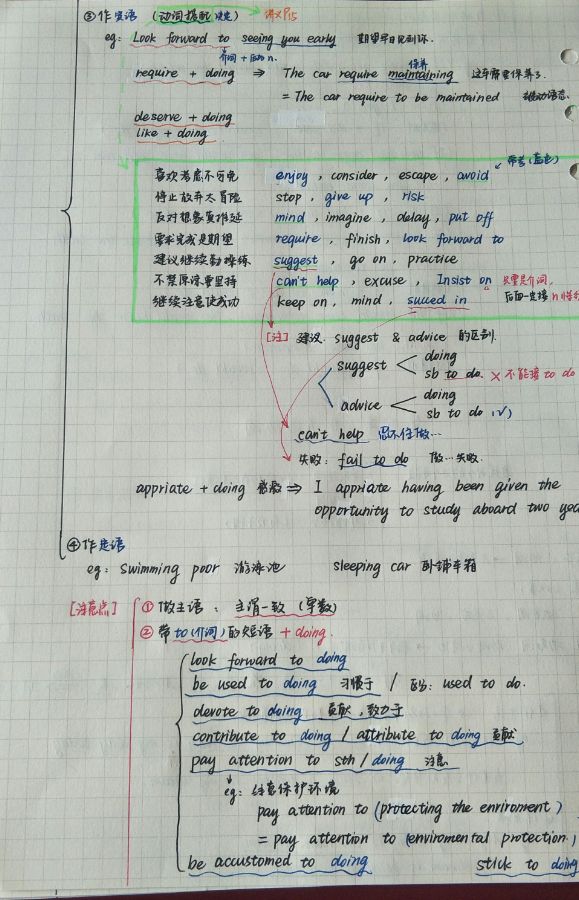 ③作宾语 (动词搭配决定) → 讲义P15
eg: Look forward to seeing you early 期望早日见到你.
介词 + 后加 n.
保养
require + doing ⇒ The car require maintaining 这车需要保养了.
= The car require to be maintained 被动语态.
deserve + doing
like + doing
常考(蓝色)
喜欢考虑不可免 enjoy, consider, escape, avoid
停止放弃太冒险 stop, give up, risk
反对想象莫推延 mind, imagine, delay, put off
要求完成是期望 require, finish, look forward to
建议继续勤操练 suggest, go on, practice
不禁原谅要坚持 can't help, excuse, Insist on 只要是介词,
继续注意使成功 keep on, mind, succed in 后面一定接 n
[注] 建议. suggest & advice 的区别.
suggest doing
sb to do. × 不能接 to do
advice doing
sb to do (√)
can't help 忍不住做…
失败: fail to do 做…失败.
appriate + doing 感激 ⇒ I appriate having been given the
opportunity to study aboard two yea
④作定语
eg: swimming poor 游泳池 sleeping car 卧铺车箱
[注意点] ① 做主语: 主谓一致 (单数)
② 带to(介词)的短语 + doing.
look forward to doing
be used to doing 习惯于 / 区分: used to do.
devote to doing 贡献, 致力于
contribute to doing / attribute to doing 贡献
pay attention to sth / doing 注意
eg: 注意保护环境
pay attention to (protecting the enviroment)
= pay attention to (enviromental protection)
be accustomed to doing stick to doing